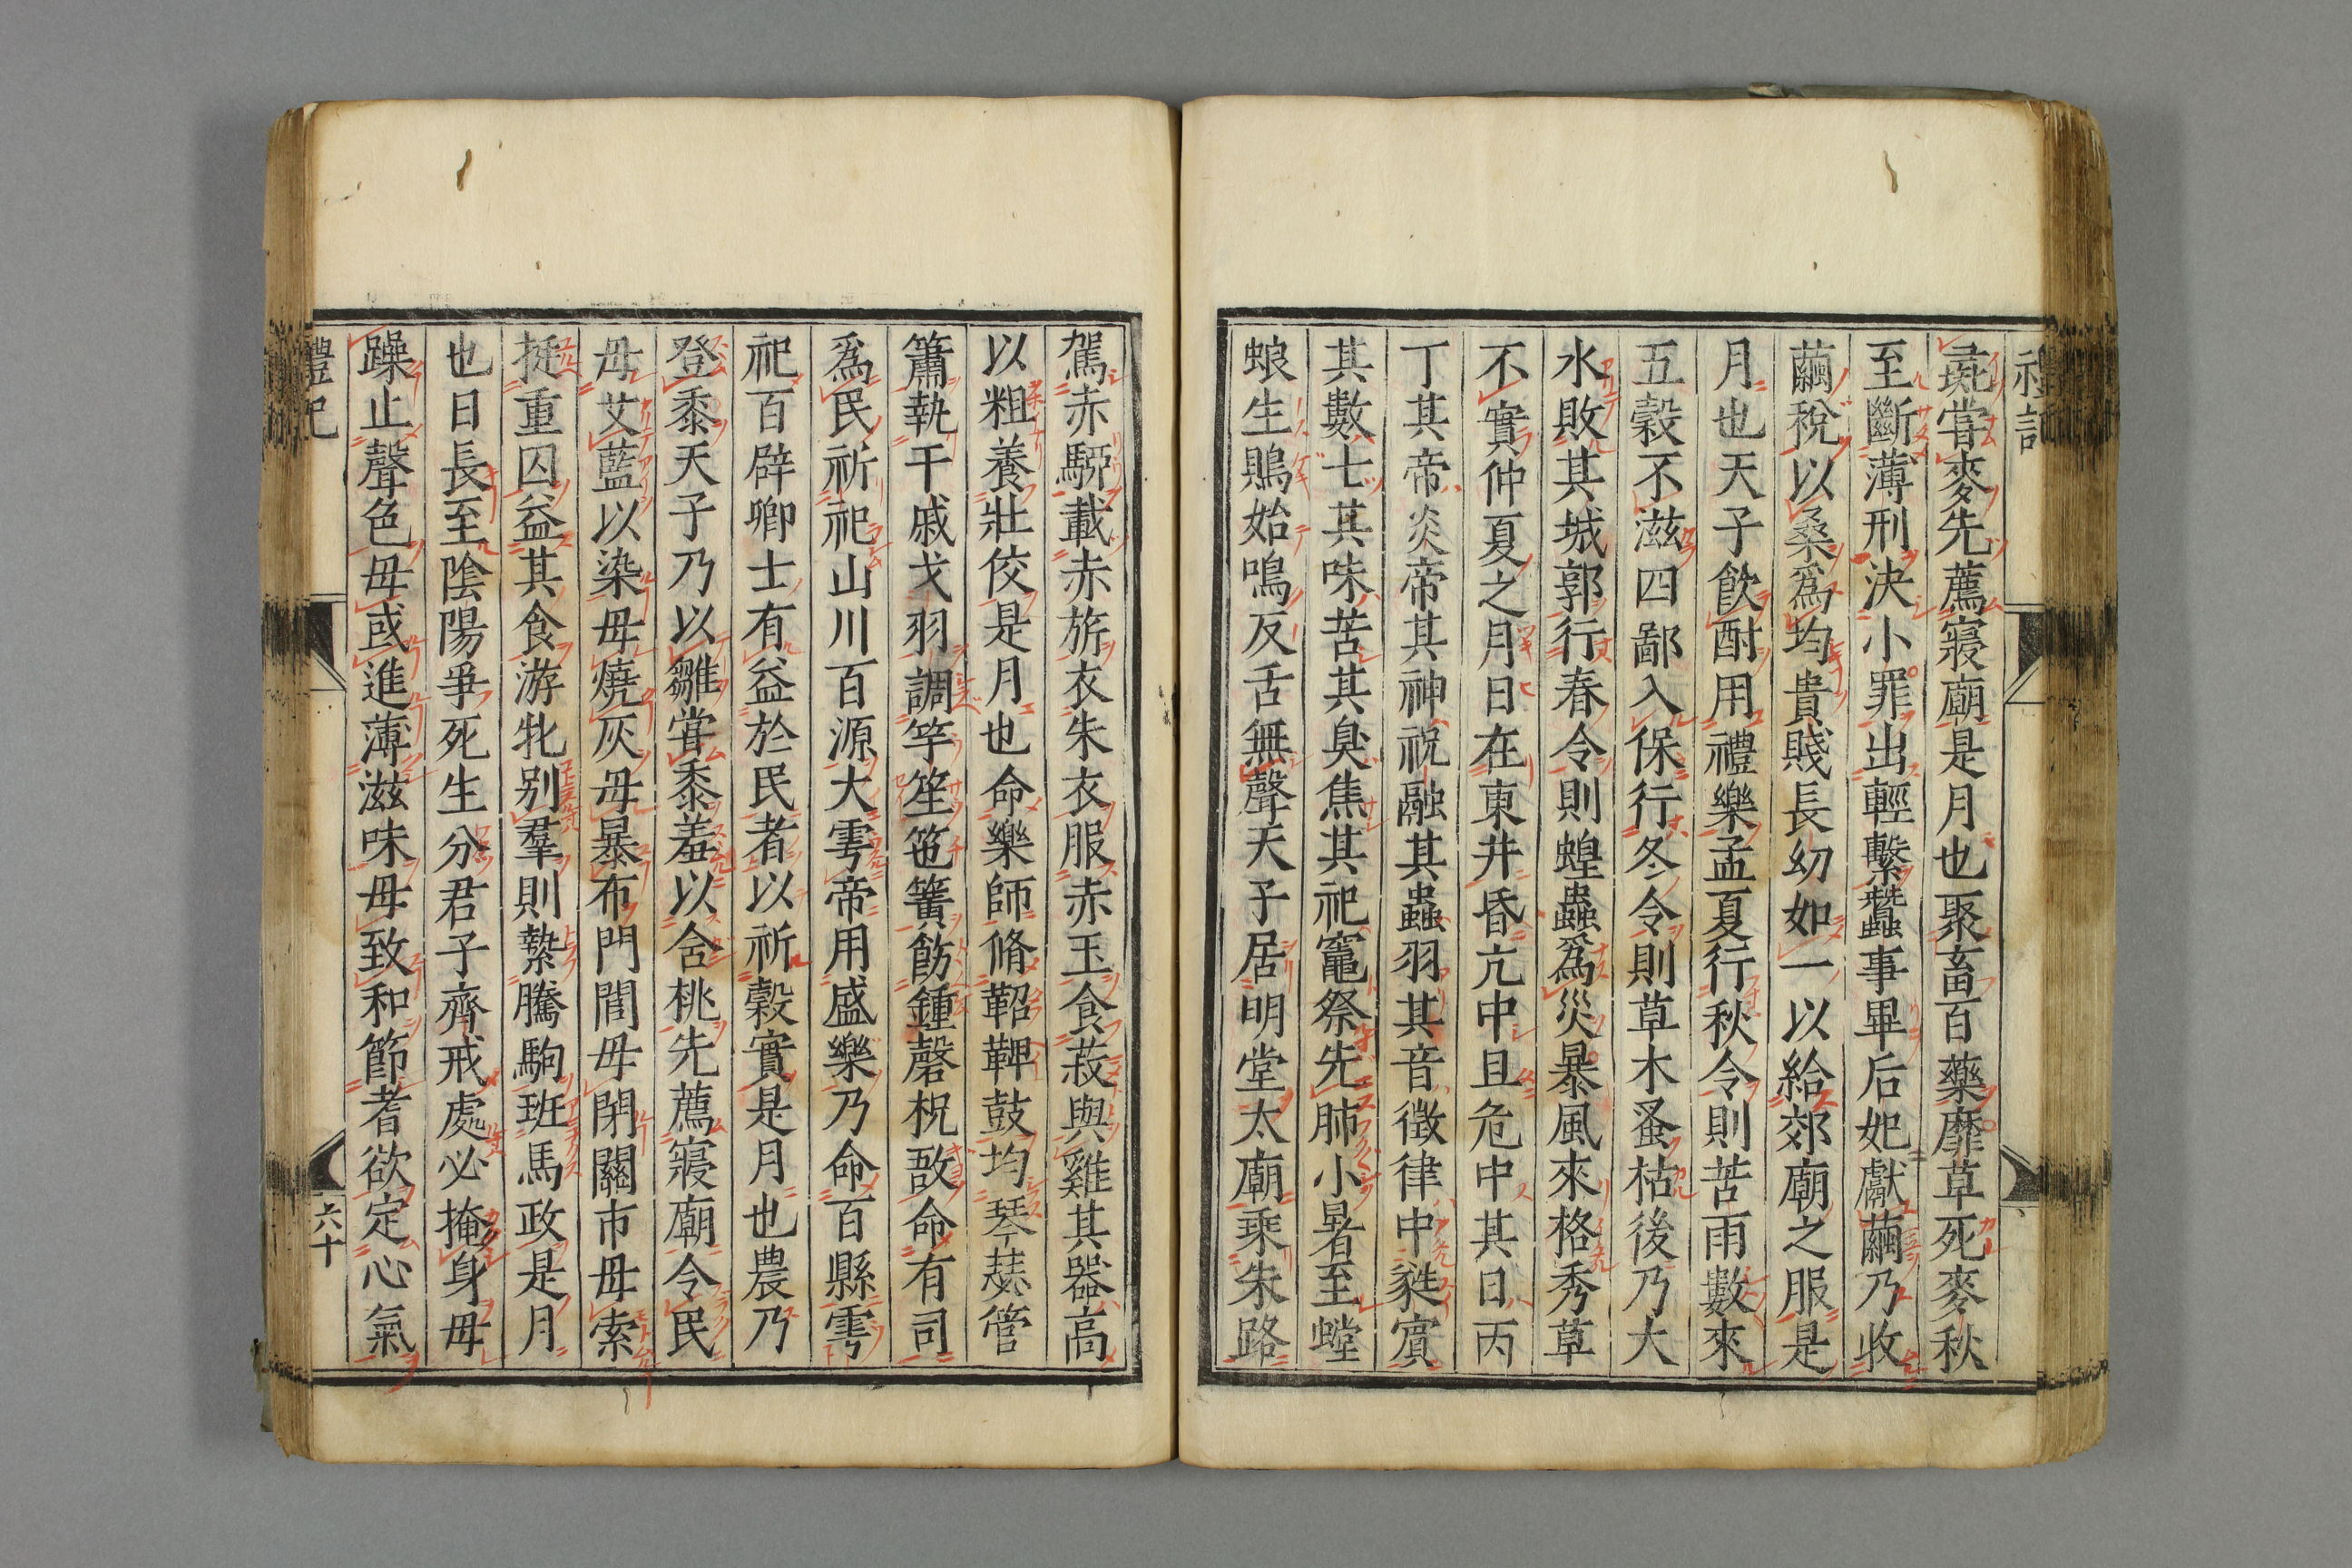 禮記
彘嘗麥先薦寢廟是月也聚畜百藥靡草死麥秋
至斷薄刑決小罪出輕繫蠶事畢后妃獻繭乃收
繭稅以桑爲均貴賤長幼如一以給郊廟之服是
月也天子飲酎用禮樂孟夏行秋令則苦雨數來
五穀不滋四鄙入保行冬令則草木蚤枯後乃大
水敗其城郭行春令則蝗蟲爲災暴風來格秀草
不實仲夏之月日在東井昏亢中旦危中其日丙
丁其帝炎帝其神祝融其蟲羽其音徵律中蕤賓
其數七其味苦其臭焦其祀竈祭先肺小暑至螳
蜋生鵙始鳴反舌無聲天子居明堂太廟乘朱路
駕赤駵載赤旂衣朱衣服赤玉食菽與雞其器高
以粗養壯佼是月也命樂師脩鞀鞞鼓均琴瑟管
簫執干戚戈羽調竽笙竾簧飭鍾磬柷敔命有司
爲民祈祀山川百源大雩帝用盛樂乃命百縣雩
祀百辟卿士有益於民者以祈穀實是月也農乃
登黍天子乃以雛嘗黍羞以含桃先薦寢廟令民
毋艾藍以染毋燒灰毋暴布門閭毋閉關市毋索
挺重囚益其食游牝別羣則縶騰駒班馬政是月
也日長至陰陽爭死生分君子齊戒處必掩身毋
躁止聲色毋或進薄滋味毋致和節耆欲定心氣
禮記
六十